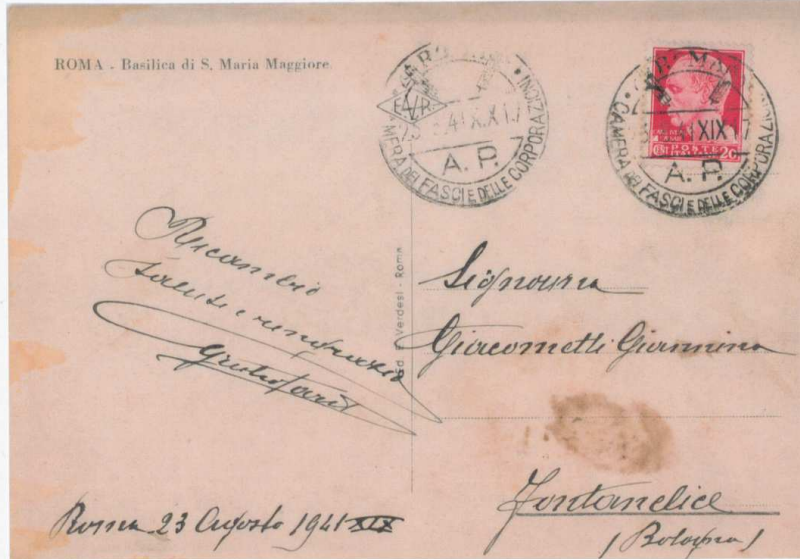 ROMA - Basilica di S. Maria Maggiore
CAMERA DEI FASCI E DELLE CORPORAZIONI
E.V.R.
A. P.
CAMERA DEI FASCI E DELLE CORPORAZIONI
XIX
A. P.
POSTE
ITALIANE
20
Ricambio
saluti e ringrazio
Ed. E. Verdesi - Roma
Signorina
Giacometti Giannina
Fontanelice
(Bologna)
Roma 23 Agosto 1941 XIX